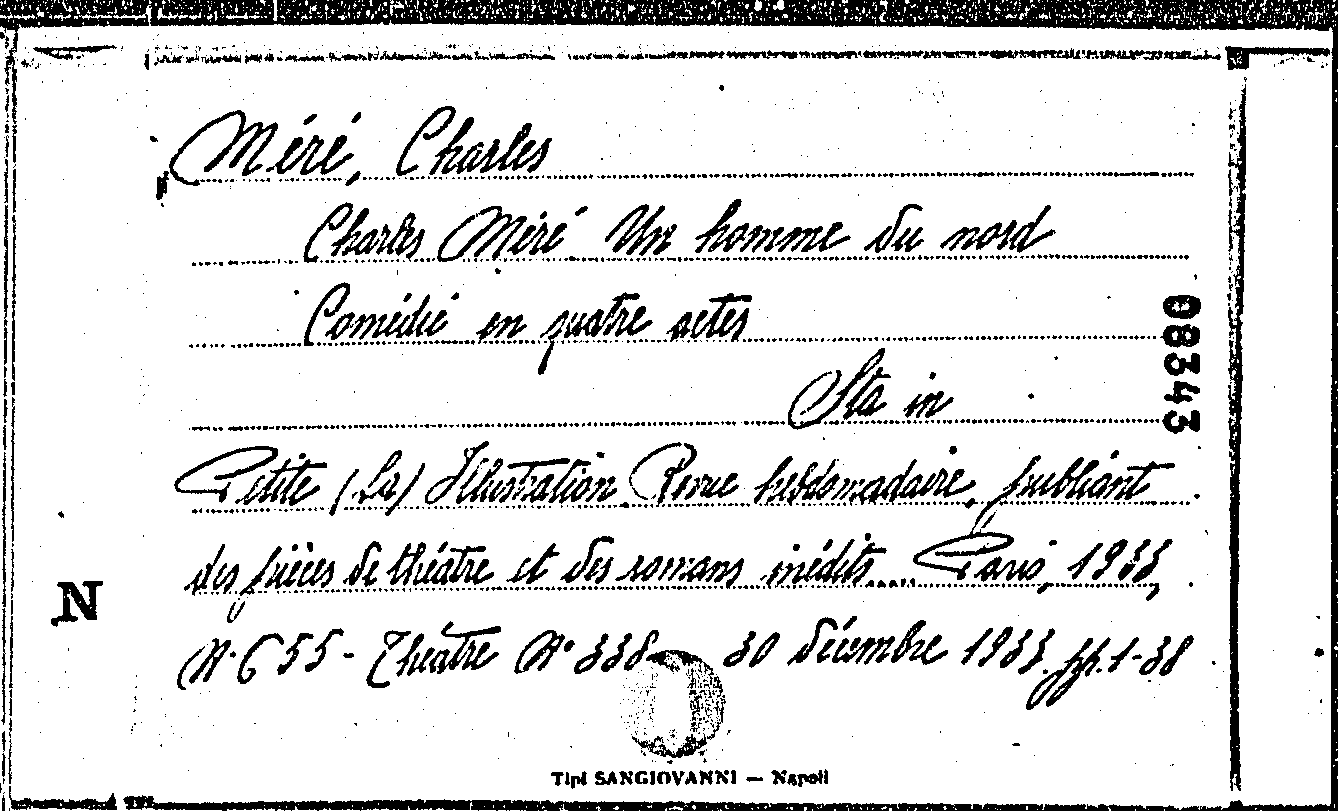 Méré, Charles
Charles Méré. Un homme du nord
Comédie en quatre actes
Sta in
Petite (La) Illustration. Revue hebdomadaire, publiant
des pièces de théâtre et des romans inédits..... Paris, 1933,
N. 655 - Théâtre N° 338 30 décembre 1933. pp. 1-38
08343
N
Tipi SANGIOVANNI — Napoli